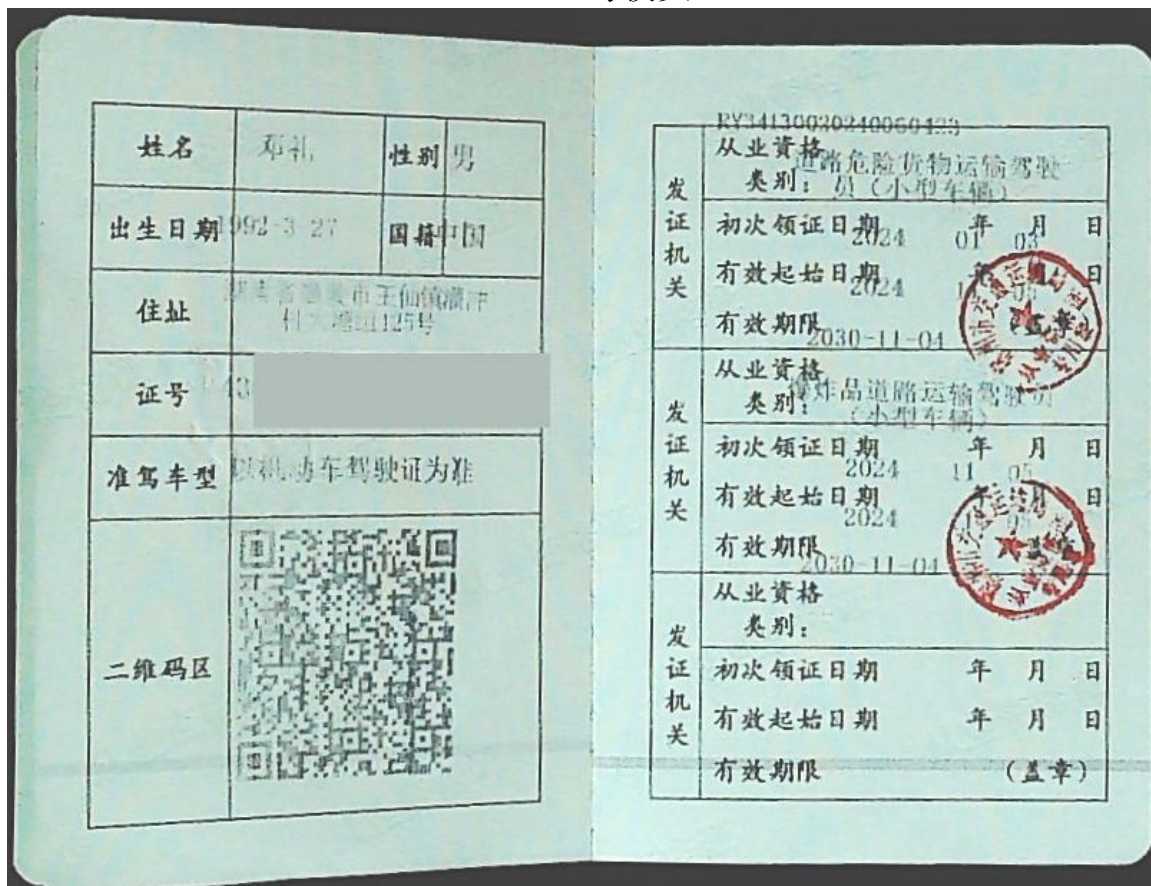 姓名 邓礼 性别 男
出生日期 1992-3-27 国籍 中国
住址 湖南省醴陵市王仙镇
村大塘组125号
证号 43
准驾车型 以机动车驾驶证为准
二维码区
RY34130020240060423
发证机关
从业资格 道路危险货物运输驾驶
类别: 员(小型车辆)
初次领证日期 2024 年 01 月 03 日
有效起始日期 2024 年 月 日
有效期限 2030-11-04 (盖章)
发证机关
从业资格 爆炸品道路运输驾驶员
类别: (小型车辆)
初次领证日期 2024 年 11 月 05 日
有效起始日期 2024 年 月 05 日
有效期限 2030-11-04
发证机关
从业资格
类别:
初次领证日期 年 月 日
有效起始日期 年 月 日
有效期限 (盖章)